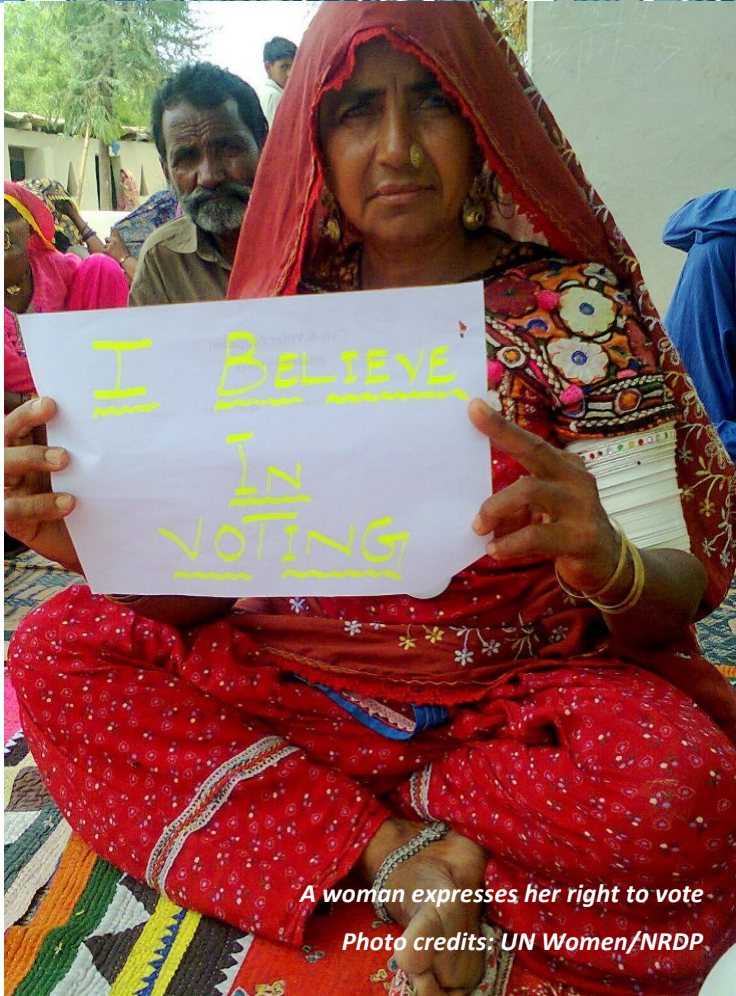 I BELIEVE
IN
VOTING
A woman expresses her right to vote
Photo credits: UN Women/NRDP